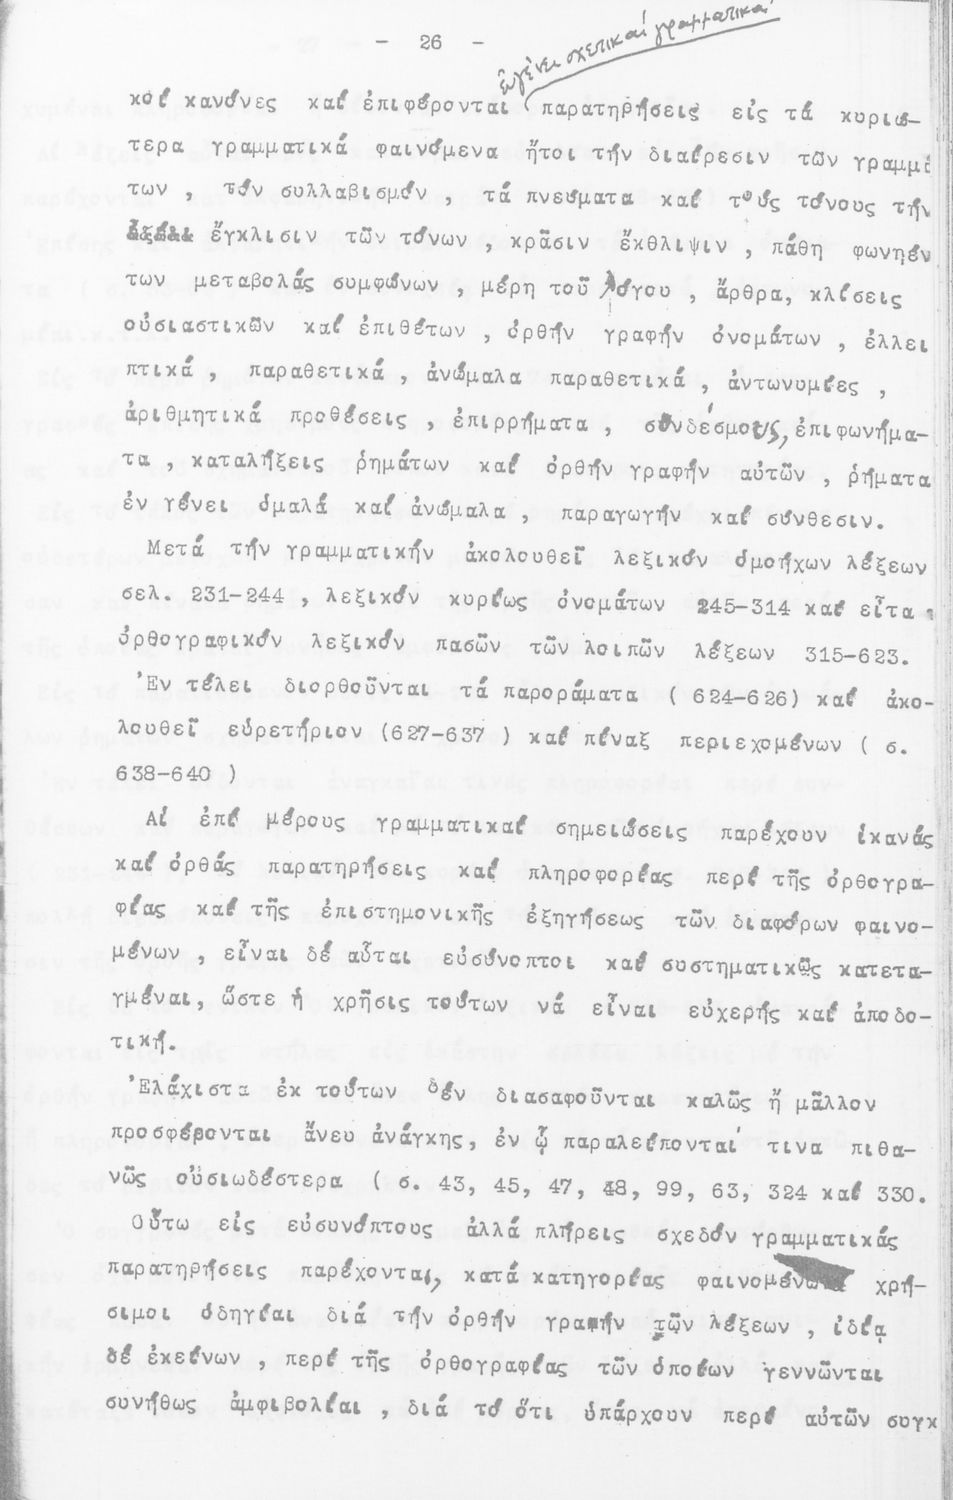 - 26 -
ἐν γένει σχετικαί γραμματικαί
καί κανόνες καί ἐπιφέρονται παρατηρήσεις εἰς τά κυριώ-
τερα γραμματικά φαινόμενα ἤτοι τήν διαίρεσιν τῶν γραμμά
των , τόν συλλαβισμόν , τά πνεύματα καί τούς τόνους τήν
ἔγκλισιν τῶν τόνων , κρᾶσιν ἔκθλιψιν , πάθη φωνηέν
των μεταβολάς συμφώνων , μέρη τοῦ λόγου , ἄρθρα, κλίσεις
οὐσιαστικῶν καί ἐπιθέτων , ὀρθήν γραφήν ὀνομάτων , ἐλλει
πτικά , παραθετικά , ἀνώμαλα παραθετικά , ἀντωνυμίες ,
ἀριθμητικά προθέσεις , ἐπιρρήματα , συνδέσμους, ἐπιφωνήμα-
τα , καταλήξεις ῥημάτων καί ὀρθήν γραφήν αὐτῶν , ρήματα
ἐν γένει ὁμαλά καί ἀνώμαλα , παραγωγήν καί σύνθεσιν.
Μετά τήν γραμματικήν ἀκολουθεῖ λεξικόν ὁμοήχων λέξεων
σελ. 231-244 , λεξικόν κυρίως ὀνομάτων 245-314 καί εἶτα
ὀρθογραφικόν λεξικόν πασῶν τῶν λοιπῶν λέξεων 315-623.
Ἐν τέλει διορθοῦνται τά παροράματα ( 624-626) καί ἀκο-
λουθεῖ εὑρετήριον (627-637 ) καί πίναξ περιεχομένων ( σ.
638-640 )
Αἱ ἐπί μέρους γραμματικαί σημειώσεις παρέχουν ἱκανάς
καί ὀρθάς παρατηρήσεις καί πληροφορίας περί τῆς ὀρθογρα-
φίας καί τῆς ἐπιστημονικῆς ἐξηγήσεως τῶν διαφόρων φαινο-
μένων , εἶναι δέ αὗται εὐσύνοπτοι καί συστηματικῶς κατετα-
γμέναι, ὥστε ἡ χρῆσις τούτων νά εἶναι εὐχερής καί ἀποδο-
τική.
Ἐλάχιστα ἐκ τούτων δέν διασαφοῦνται καλῶς ἤ μᾶλλον
προσφέρονται ἄνευ ἀνάγκης, ἐν ᾧ παραλείπονται τινα πιθα-
νῶς οὐσιωδέστερα ( σ. 43, 45, 47, 48, 99, 63, 324 καί 330.
Οὕτω εἰς εὐσυνόπτους ἀλλά πλήρεις σχεδόν γραμματικάς
παρατηρήσεις παρέχονται, κατά κατηγορίας φαινομένων χρή-
σιμοι ὁδηγίαι διά τήν ὀρθήν γραφήν τῶν λέξεων , ἰδίᾳ
δέ ἐκείνων , περί τῆς ὀρθογραφίας τῶν ὁποίων γεννῶνται
συνήθως ἀμφιβολίαι , διά τό ὅτι ὑπάρχουν περί αὐτῶν συγκ